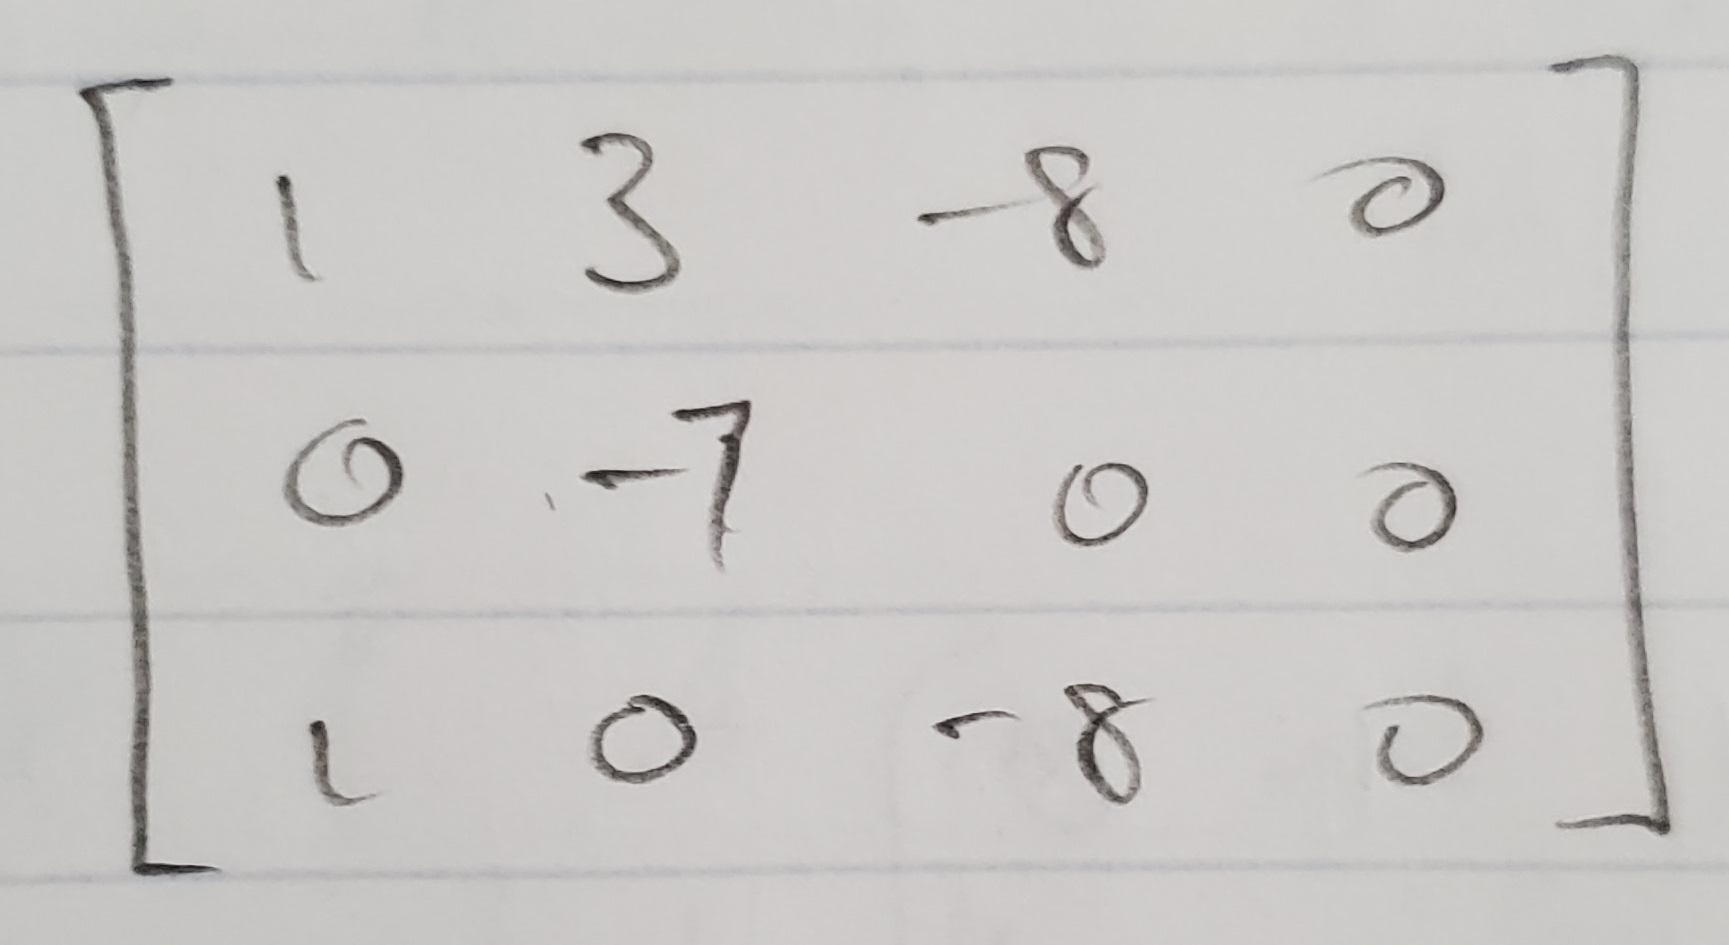 1 3 -8 0
0 -7 0 0
1 0 -8 0